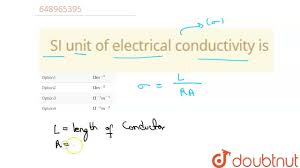 648965395
SI unit of electrical conductivity is
(σ)
Option1
Option2
Option3
Option4
σ = L / RA
L = length of Conductor
A =
doubtnut